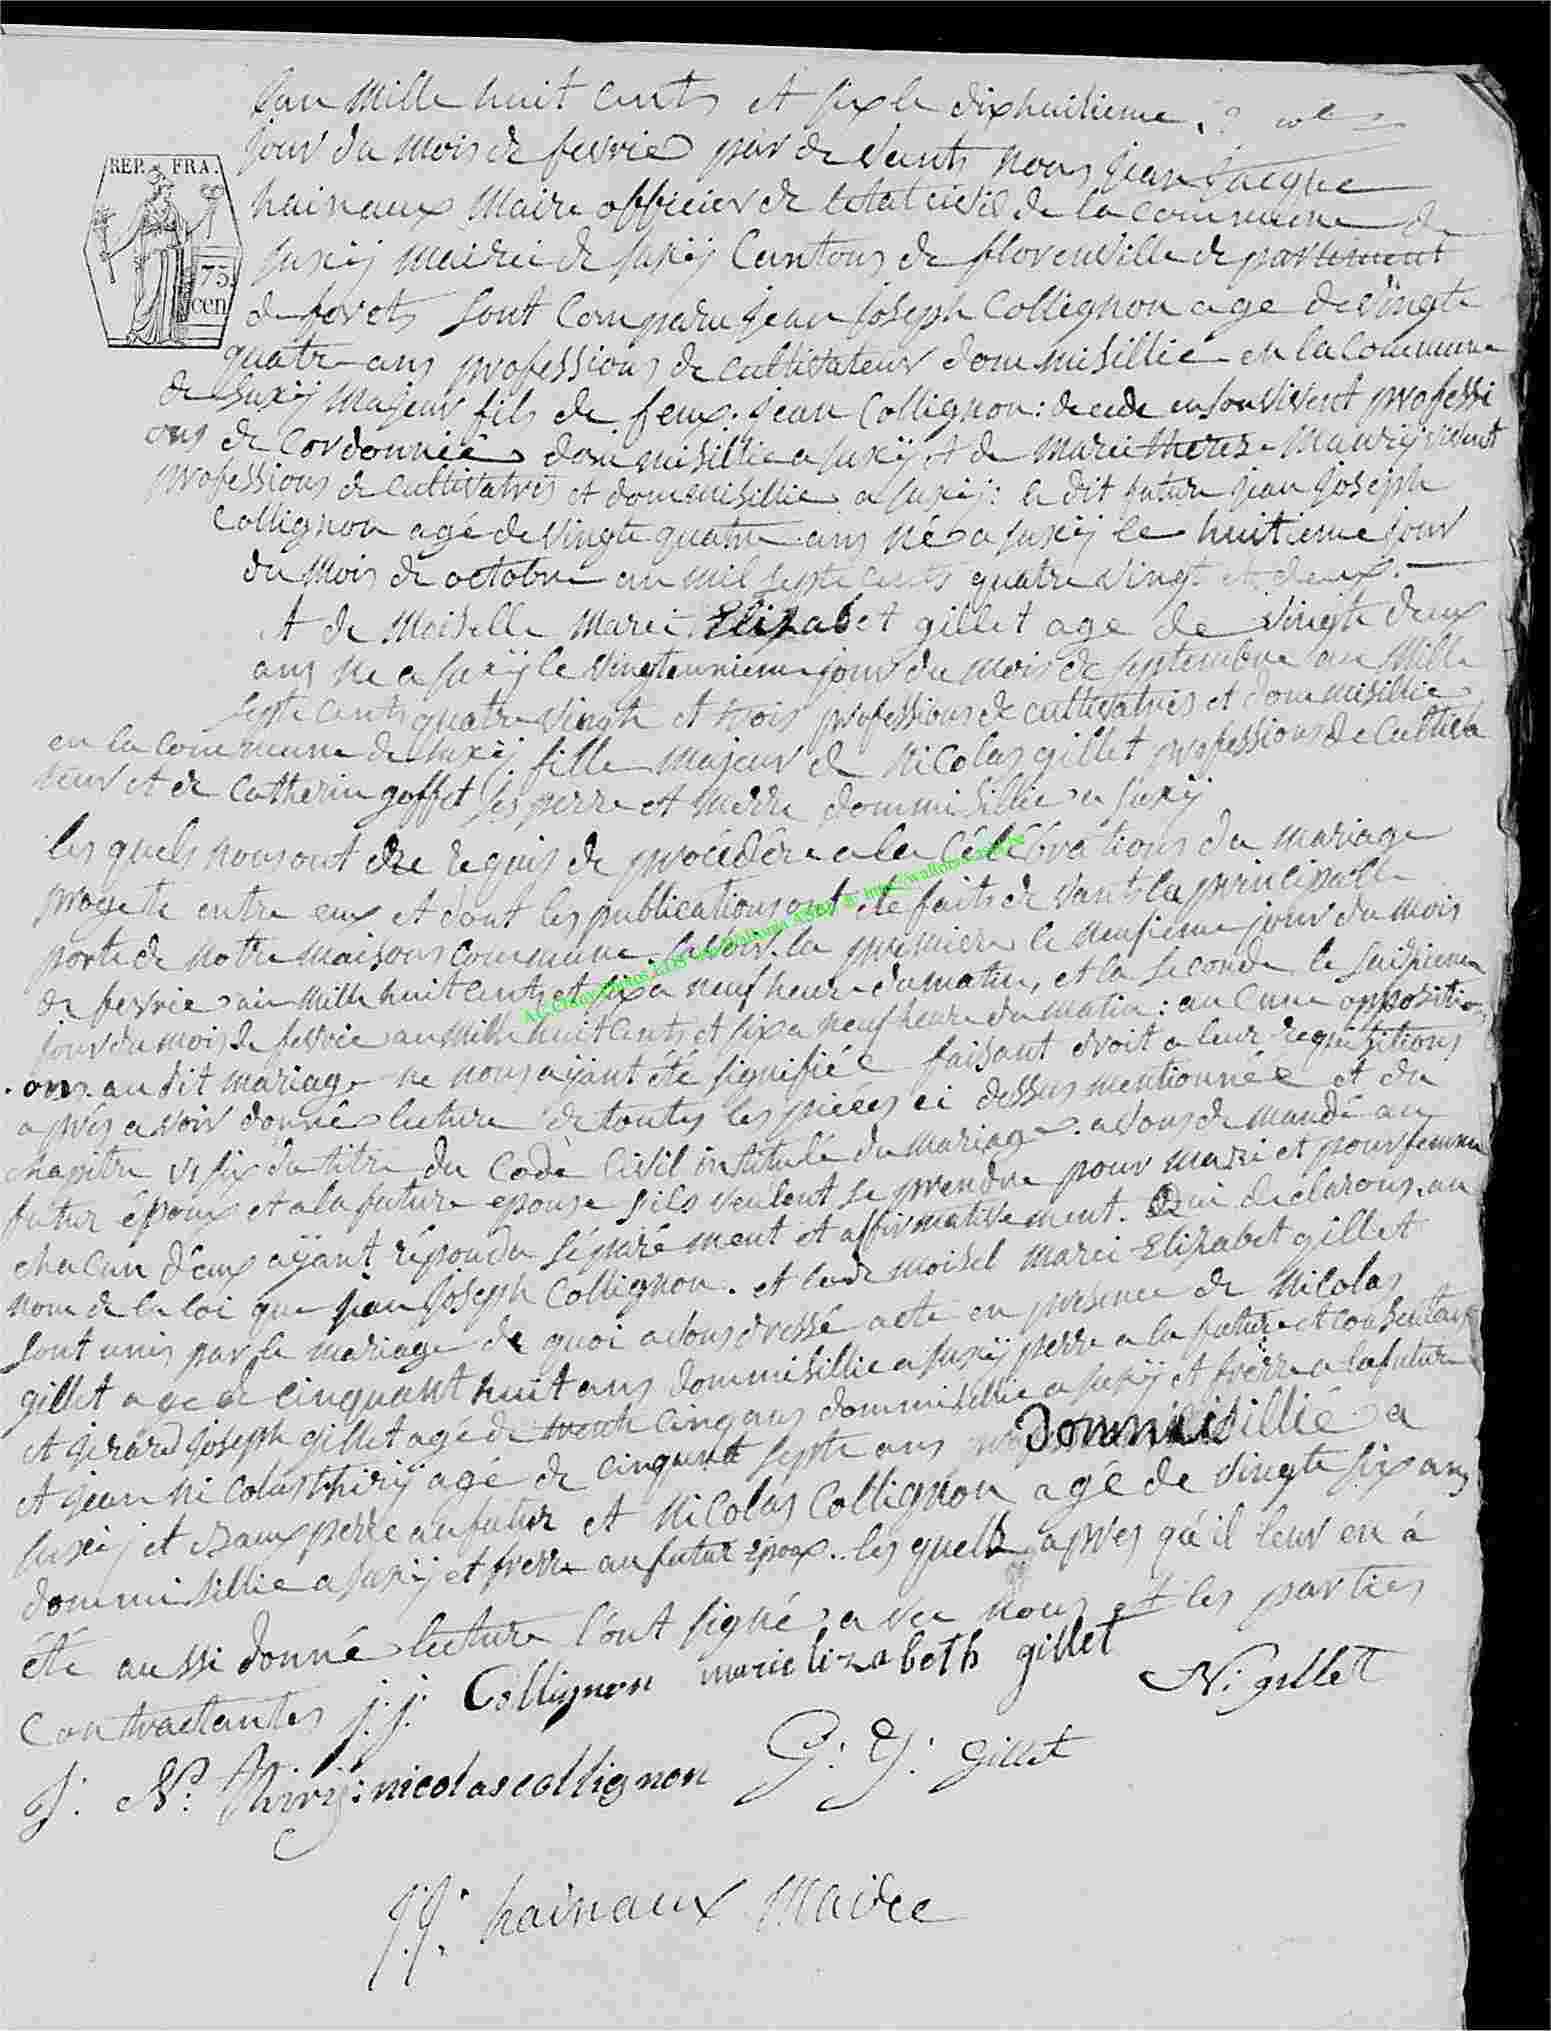 REP. FRA.
75
cen
Lan Mille huit cents et six le dixhuitieme
jour du mois de fevrie par devants nous jean jacque
hainaux Maire officier de letat civil de la commune de
suxÿ mairie de suxÿ Cantons de florenville departement
de forets sont Comparu jean joseph Collignon age de vingte
quatre ans professions de cultivateur dommisillie en la commune
de Suxÿ majeur fils de feux jean Collignon: decede en son vivent professi
ons de Cordonnie dommisillie a suxÿ et de marie therese Maurÿ vivent
professions de cultivatris et dommisillie a suxÿ: le dit future jean joseph
Collignon agé de vingte quatre ans né a suxÿ le huitieme jour
du mois de octobre an mil septe cents quatre vingt et deux.
et de Moiselle Marie Elizabet gillet age de vingte deux
ans ne a suxÿ le vingteunieme jour du mois de septembre an Mille
septe cents quatre vingte et trois professions de cultivatris et dommisillie
en la commune de suxÿ fille majeur de Nicolas gillet professions de cultiva
teur et de Catherin goffet ses perre et merre dommisillie a suxÿ
les quels nous ont requis de procédére a la célébrations du mariage
progete entre eux et dont les publications ont ete faits devant la principalle
porte de notre maisons commune. savoir. la premiere le neufieme jour du mois
de fevrie an mille huit cents et six a neuf heure du matin, et la seconde le seizieme
jour du mois de fevrie an mille huit cents et six a neuf heure du matin: aucune oppositio
ons. au dit mariage ne nous aÿant été signifiée faisant droit a leur requisitions
aprés avoir donné lecture de toutes les piéces ci dessus mentionnée et du
chapitre vi six du titre du Code Civil intitulé du mariage. avons demandé au
futur époux et a la future epouse s'ils veulent se prendre pour mari et pour femme
chacun d'eux aÿant répondu séparément et affirmativement. declarons au
nom de la loi que jean joseph Collignon. et la de moisel marie Elizabet gillet
sont unis par le mariage de quoi avons dressé acte en presence de Nicolas
gillet age de cinquant huit ans dommisillie a suxÿ perre a la future et consentant
et gerard joseph gillet agé de trente cinq ans dommisillie a suxÿ et frérre a la future
et jean nicolas thirÿ agé de cinquent septe ans Dommisillié a
suxÿ et beaux perre au futur et Nicolas Collignon agé de vingte six ans
dommisillie a suxÿ et frerre au futur époux.. les quelz apres qu'il leur en á
été aussi donné lecture l'ont signé avec nous et les parties
Contractantes j. j. Collignon marie lizabeth gillet
N. gillet
J. N. thirÿ: nicolas collignon G. J. Gillet
J.J. hainaux Maire